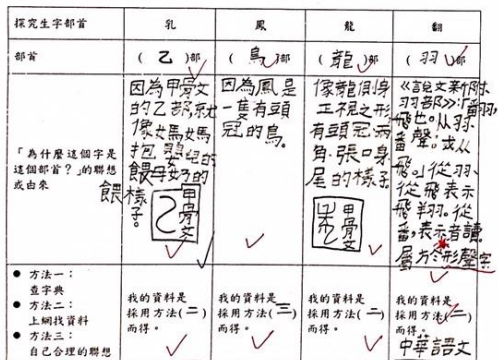 探究生字部首
乳
鳳
龍
翻
部首
(乙)部
(鳥)部
(龍)部
(羽)部
「為什麼這個字是
這個部首?」的聯想
或由來
因為甲骨文
的乙部,就
像女馬女馬
抱嬰兒的
餵母奶的
餵樣
子。
乙
甲骨文
因為鳳是
一隻有頭
冠的鳥。
像龍側身
正視之形
有頭冠、兩
角、張口、身
尾的樣子
甲骨文
《說文新附.
羽部》:「翻,
飛也。从羽、
番聲。或从
飛。」從羽、
從飛表示
飛翔。從
番,表示音讀。
屬於形聲字
● 方法一:
查字典
● 方法二:
上網找資料
● 方法三:
自己合理的聯想
我的資料是
採用方法(二)
而得。
我的資料是
採用方法(三)
而得。
我的資料是
採用方法(二)
而得。
我的資料是
採用方法(二)
而得。
中華語文